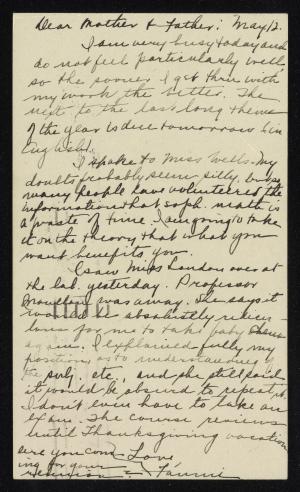 Dear Mother & Father: May 12.
I am very busy today and
do not feel particularly well,
so the sooner I get thru with
my work the better. The
next to the last long theme
of the year is due tomorrow in
English.
I spoke to Miss Wells. My
doubts probably seem silly, but so
many people have volunteered the
information that soph. math is
a waste of time. I am going to take
it on the theory that what you
want benefits you.
I saw Miss Landon over at
the lab. yesterday. Professor
Moulton was away. She says it
would be absolutely ridicu-
lous for me to take
again. I explained fully my
position as to understanding
the subj. etc, and she still said
it would be absurd to repeat it.
I don't even have to take an
exam. The course reviews
until Thanksgiving vacation
are you com- Love
ing for your Fannie
reunion?